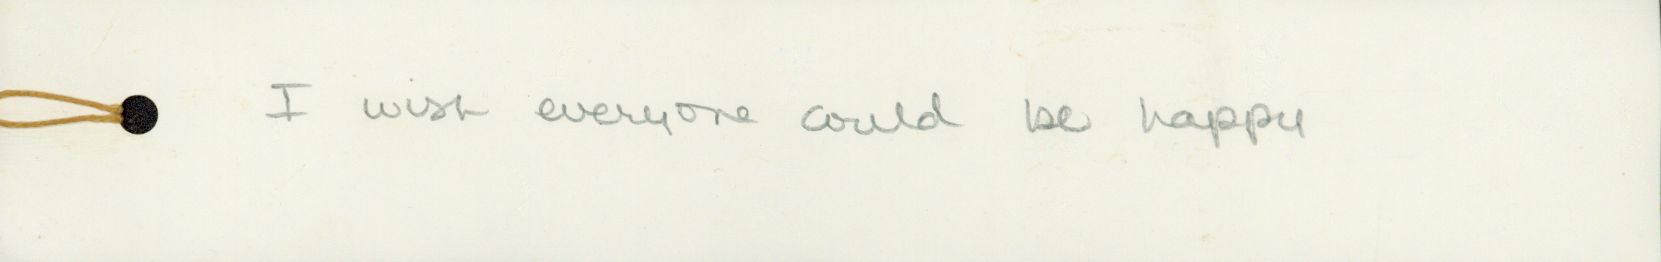 I wish everyone could be happy